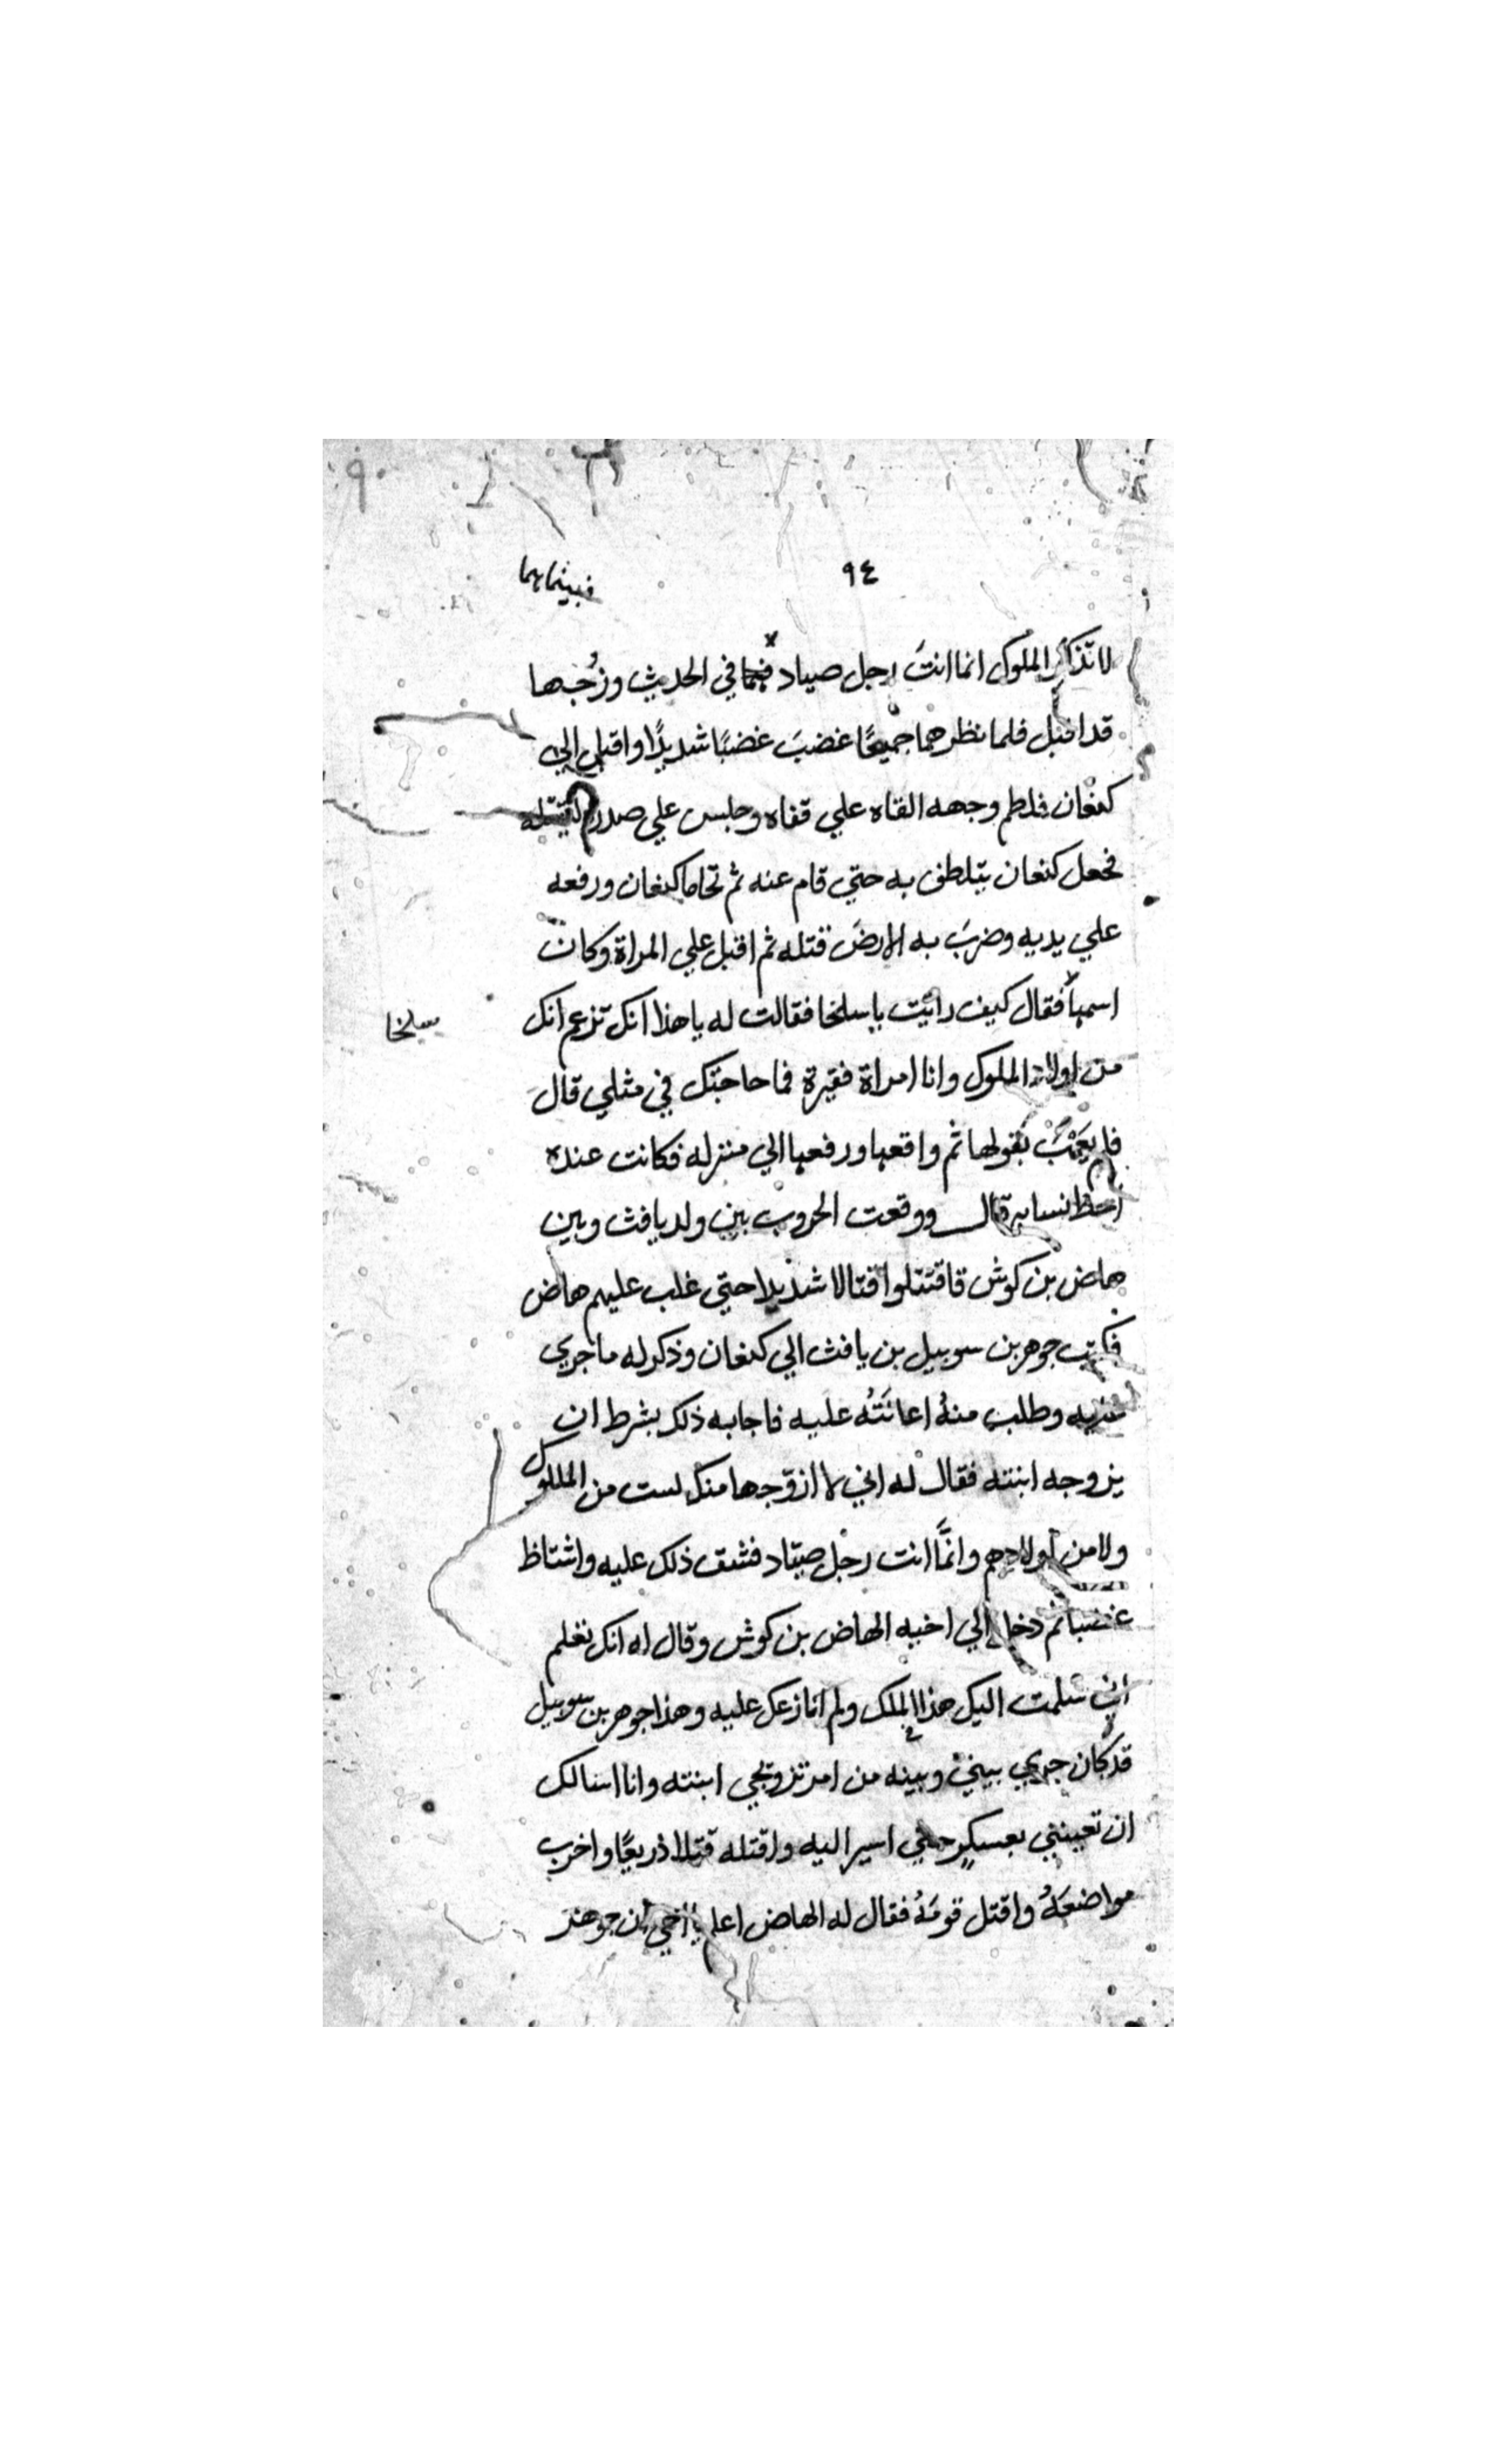 ٩٤
فبينما هما
لا تذكر الملوك انما انتَ رجل صياد فهما في الحديث وزُجها
قد اقبل فلما نظر هما جميعًا غضبَ غضبًا شديدًا واقبل الي
كنعان فلطم وجهه القاه علي قفاه وجلس علي صدره ليقتله
فجعل كنعان يتلطف به حتي قام عنه ثم تحاما كنعان ورفعه
علي يديه وضربَ به الارضَ قتله ثم اقبل علي المراة وكان
اسمها فقال كيف رائيت يا سلخا فقالت له يا هذا انك تزعم انك
سلخا
من اولاد الملوك وانا امراة فقيرة فما حاجتك في مثلي قال
فلم يعبَٔ بقولها ثم واقعها ورفعها الي منزله فكانت عنده
احظ نسايه قال ووقعت الحروب بين ولد يافث وبين
هاض بن كوش فاقتتلوا قتالا شديدا حتي غلب عليهم هاض
فكتب جوهر بن سوبيل بن يافث الي كنعان وذكر له ما جري
وطلب منهُ اعانَتُه عليه فاجابه ذلك بشرط ان
يزوجه ابنته فقال له اني لا ازوّجها منك لست من الملوك
ولا من اولادهم وانَّما انت رجل صيّاد فشق ذلك عليه واشتاظ
غضبا ثم دخل الي اخيه الهاض بن كوش وقال له انك تعلم
اني سلمت اليك هذا الملك ولم انازعك عليه وهذا جوهر بن سوبيل
قد كان جري بيني وبينه من امر تزويجي ابنته وانا اسالك
ان تعينني بعسكرٍ حتي اسير اليه واقتله قتلا ذريعًا واخرب
مواضعَهُ واقتل قومَهُ فقال له الهاض اعلم يا اخي ان جوهر